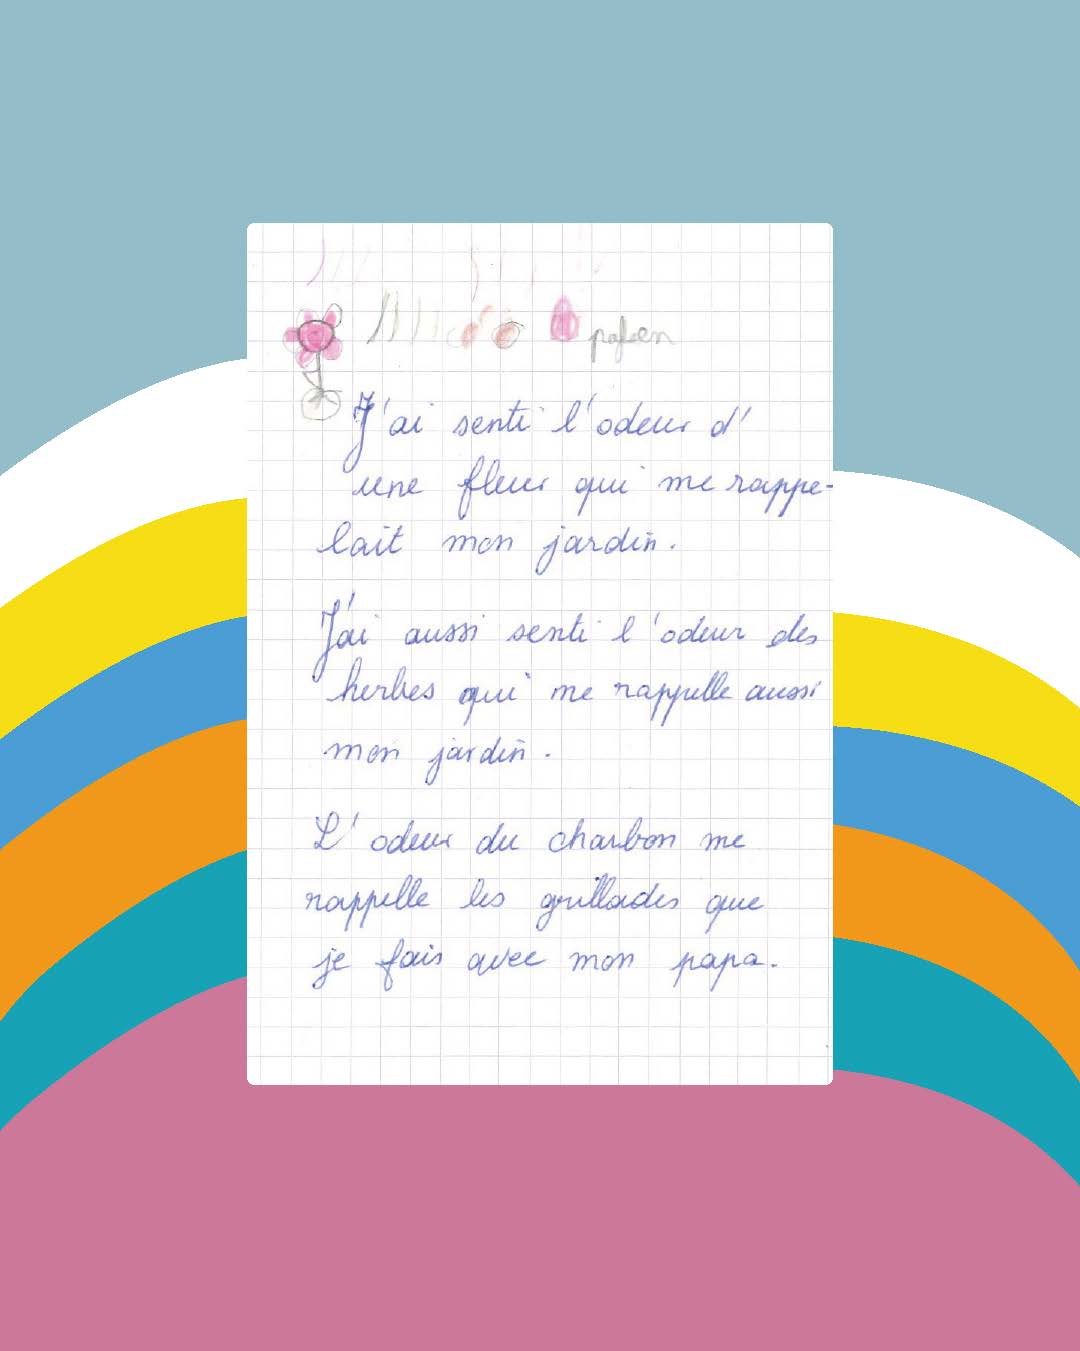 J'ai senti l'odeur d'
une fleur qui me rappe-
lait mon jardin.
J'ai aussi senti l'odeur des
herbes qui me rappelle aussi
mon jardin.
L'odeur du charbon me
rappelle les grillades que
je fais avec mon papa.